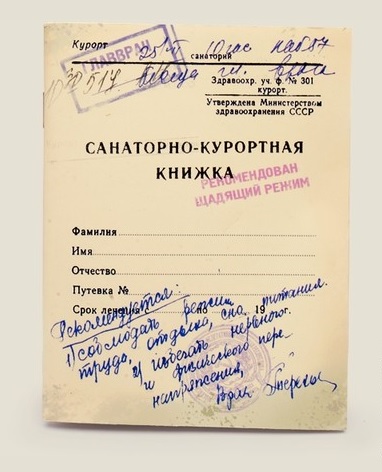 Курорт
25/VI 10 час каб 57
санаторий
ГЛАВВРАЧ
517
Здравоохр. уч. ф. № 301
курорт.
Утверждена Министерством
здравоохранения СССР
САНАТОРНО-КУРОРТНАЯ
КНИЖКА
РЕКОМЕНДОВАН
ЩАДЯЩИЙ РЕЖИМ
Фамилия
Имя
Отчество
Путевка №
Срок лечения с по 19 г.
Рекомендуется:
1) соблюдать режим
труда, отдыха, сна, питания.
2) избегать нервного
и физического пере-
напряжения.
Врач